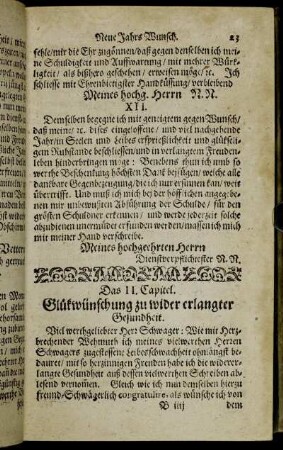 Neue Jahrs Wunsch. 23
fehle/mir die Ehr zugönnen/daß gegen denselben ich mei-
ne Schuldigkeit und Auffwartung/mit mehrer Würk-
ligkeit/ als bißhero geschehen/ erweisen mög/ ꝛc. Ich
schliesse mit Ehrnbietigster Handküssung/ verbleibend
Meines hochg. Herrn N. N.
XII.
Demselben begegne ich mit geneigtem gegen Wunsch/
daß meine/ ꝛc. dises eingeloffene/ und viel nachgehende
Jahr/in Seelen und Leibes ersprießlichkeit und glückseli-
gem Ruhestande beschliessen und in verlangten Freuden-
leben hinderbringen möge: Benebens thun ich umb so
werthe Beschenkung höchsten Danck beyfügen/ welche alle
danckbare Gegenbezeugung/die ich nur ersinnen kan/ weit
übertrifft. Und muß ich mich bey dero höfflichen angege-
nen mir unbewusten Abführung der Schulde/ für den
grösten Schuldner erkennen/ und werde jederzeit solche
abzudienen unermüdet erfunden werden/massen ich mich
mit meiner Hand verschreibe.
Meines hochgeehrten Herrn
Dienstverpflichtester N. N.
Das II. Capitel.
Glükwünschung zu wider erlangter
Gesundheit.
Viel werthgeliebter Herr Schwager: Wie mit Hertz-
brechender Wehmuth ich meines vielwerthen Herren
Schwagers zugestossene Leibesschwachheit ohnlängst be-
dauret/ mit so hertzinnigen Freuden habe ich die widerer-
langte Gesundheit auß dessen vielwerthen Schreiben ab-
lesend vernommen. Gleich wie ich nun demselben hierzu
freund-Schwägerlich congratulire/als wünsche ich von
B iiij dem